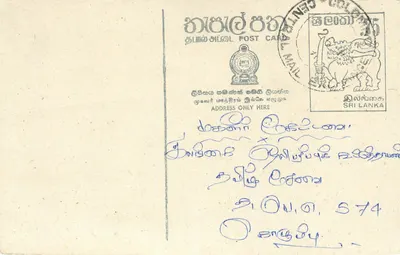 තැපැල් පත
தபால் அட்டை POST CARD
ලිපිනය පමණක් මෙහි ලියන්න
முகவரி மாத்திரம் இங்கே எழுதுக
ADDRESS ONLY HERE
CENTRAL MAIL
COLOMBO
ශ්‍රී ලංකා
இலங்கை
SRI LANKA
மகளிர்
இலங்கை
தமிழ் சேவை
த.பெ.இ. 574
கொழும்பு